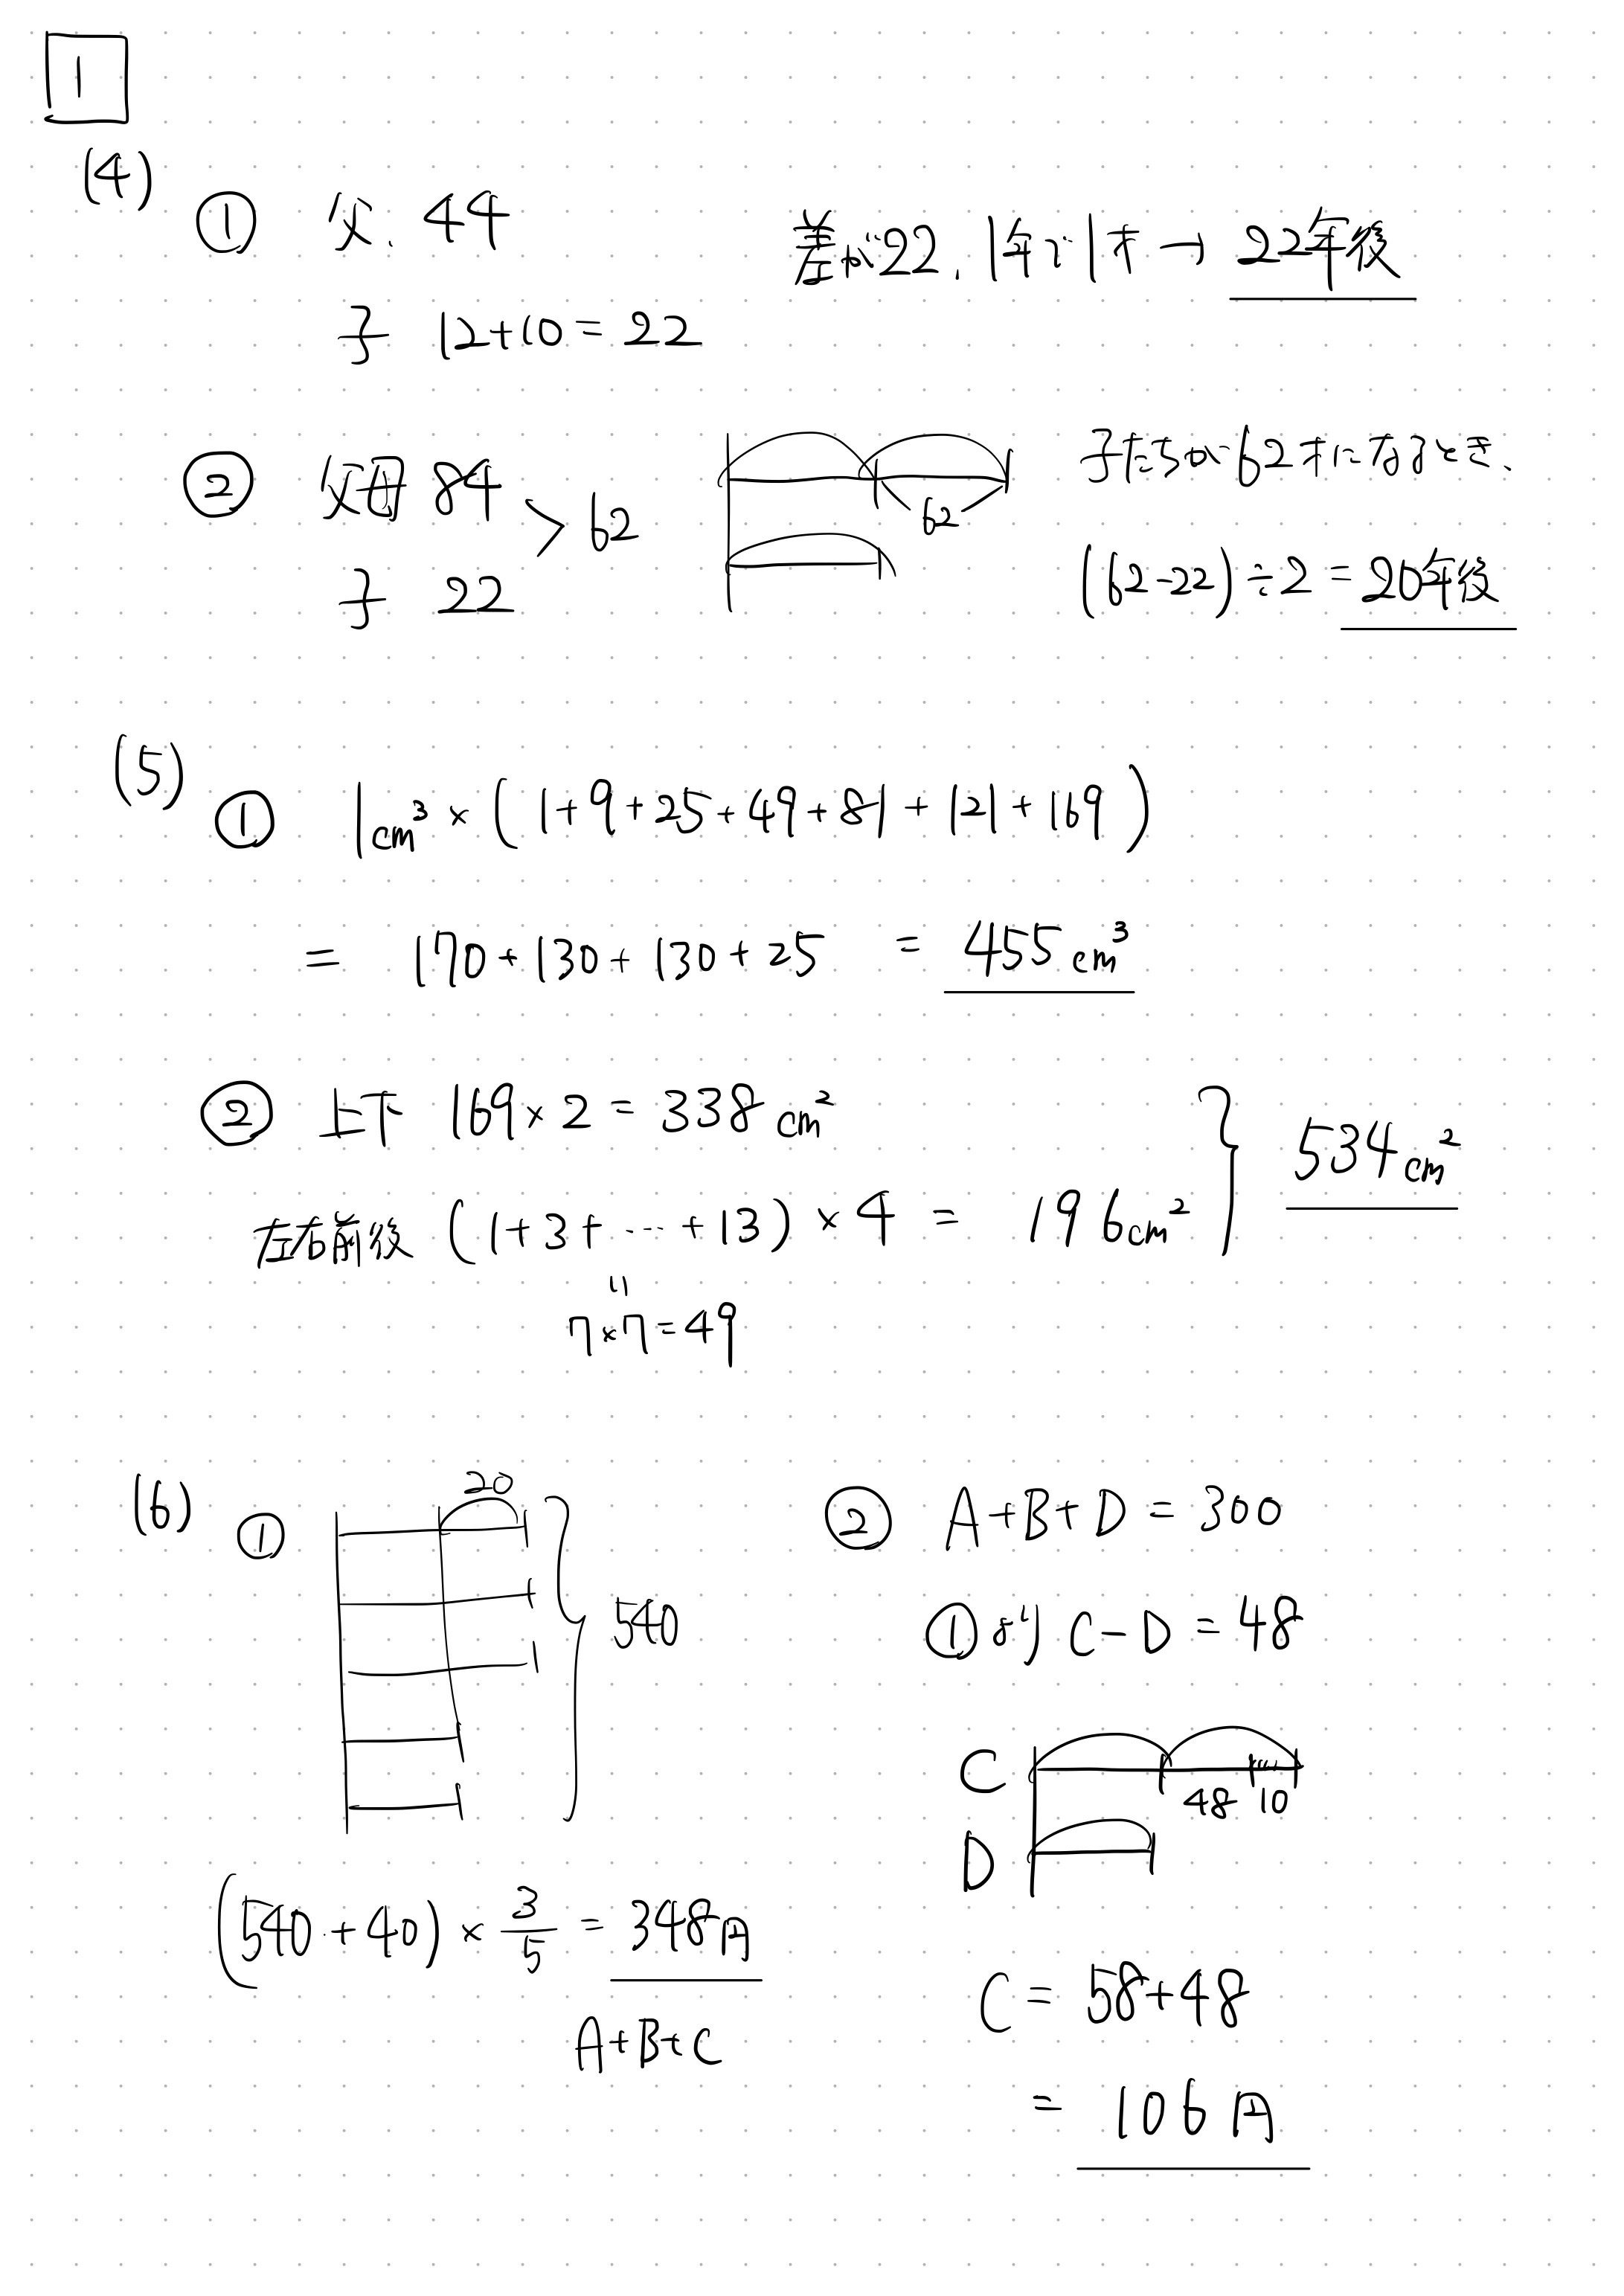 1
(4)
① 父、44
差が22、1年で1才→22年後
子 12+10=22
② 父母 84
子 22
>62
62
子たちが62才になるとき、
(62-22)÷2=20年後
(5)
① 1cm³×(1+9+25+49+81+121+169)
= 170+130+130+25 = 455cm³
② 上下 169×2=338cm²
左右前後 (1+3+…+13)×4 = 196cm²
534cm²
〃
7×7=49
(6)
①
20
540
(540+40)×3/5=348円
A+B+C
② A+B+D=300
①より C-D=48
C
48 10
D
C= 58+48
= 106円